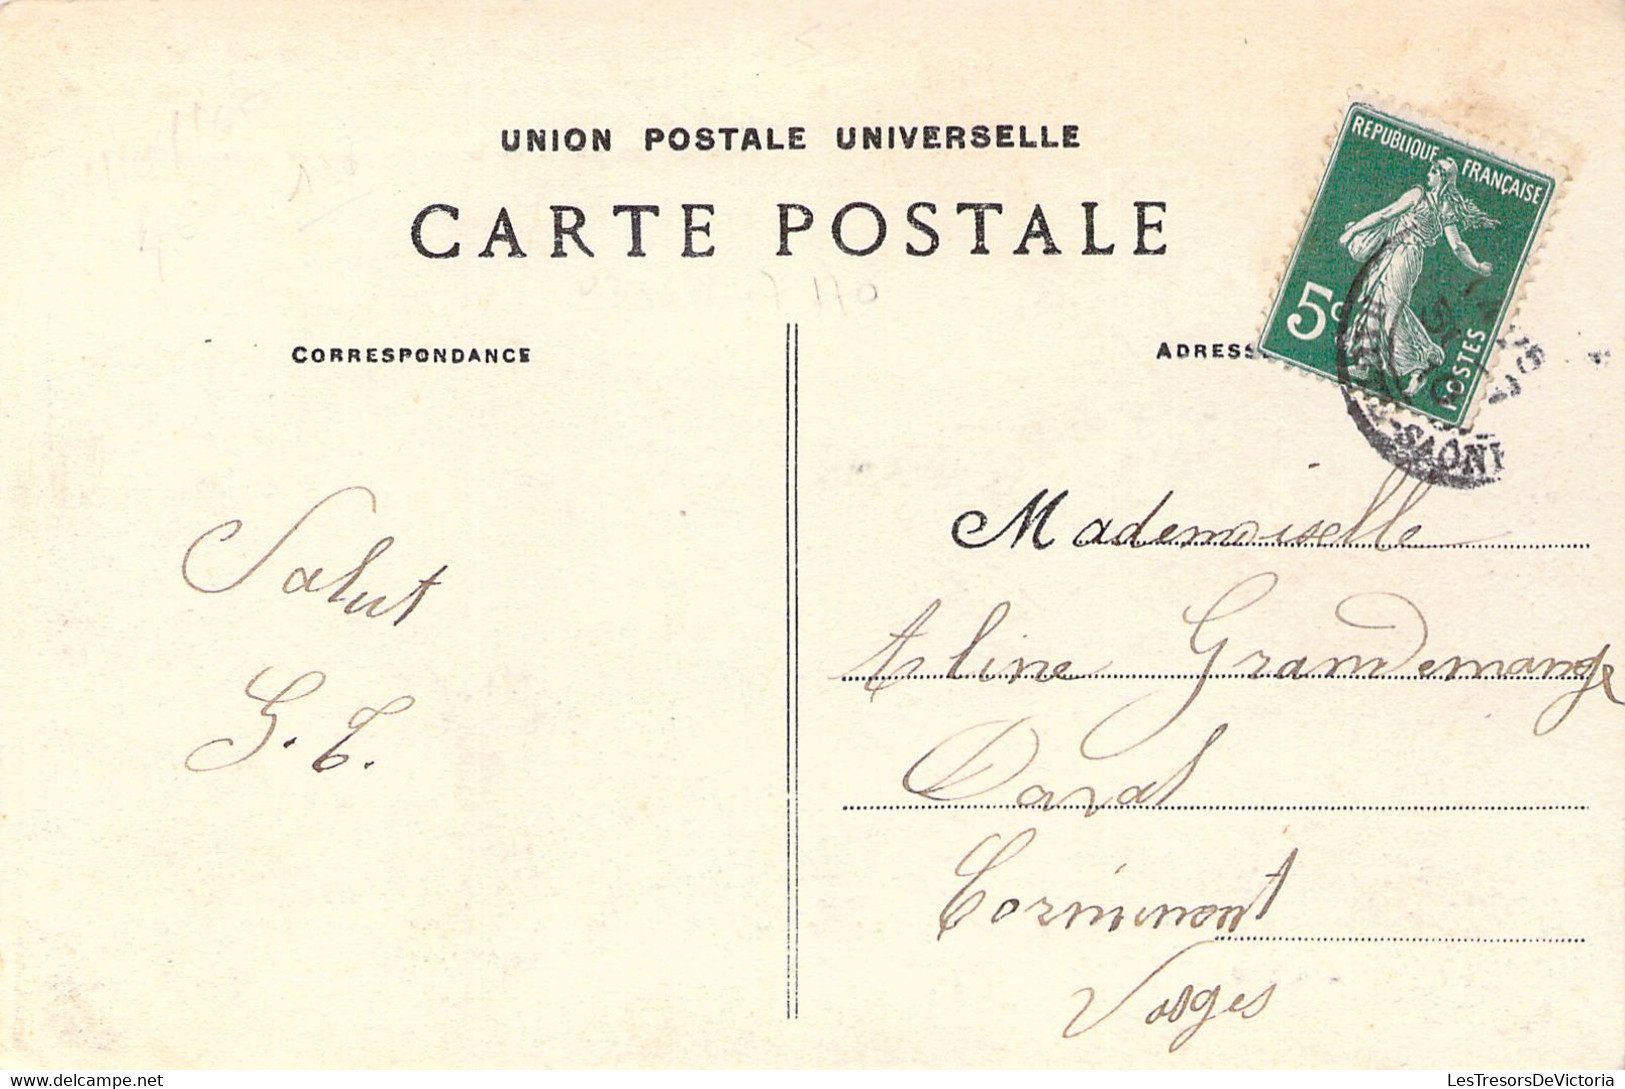 UNION POSTALE UNIVERSELLE
CARTE POSTALE
7 170
CORRESPONDANCE
ADRESS
REPUBLIQUE FRANÇAISE
5c
POSTES
SAÔN
Salut
G. C.
Mademoiselle
Arline Grandemange
Daval
Corniment
Vosges
LesTresorsDeVictoria